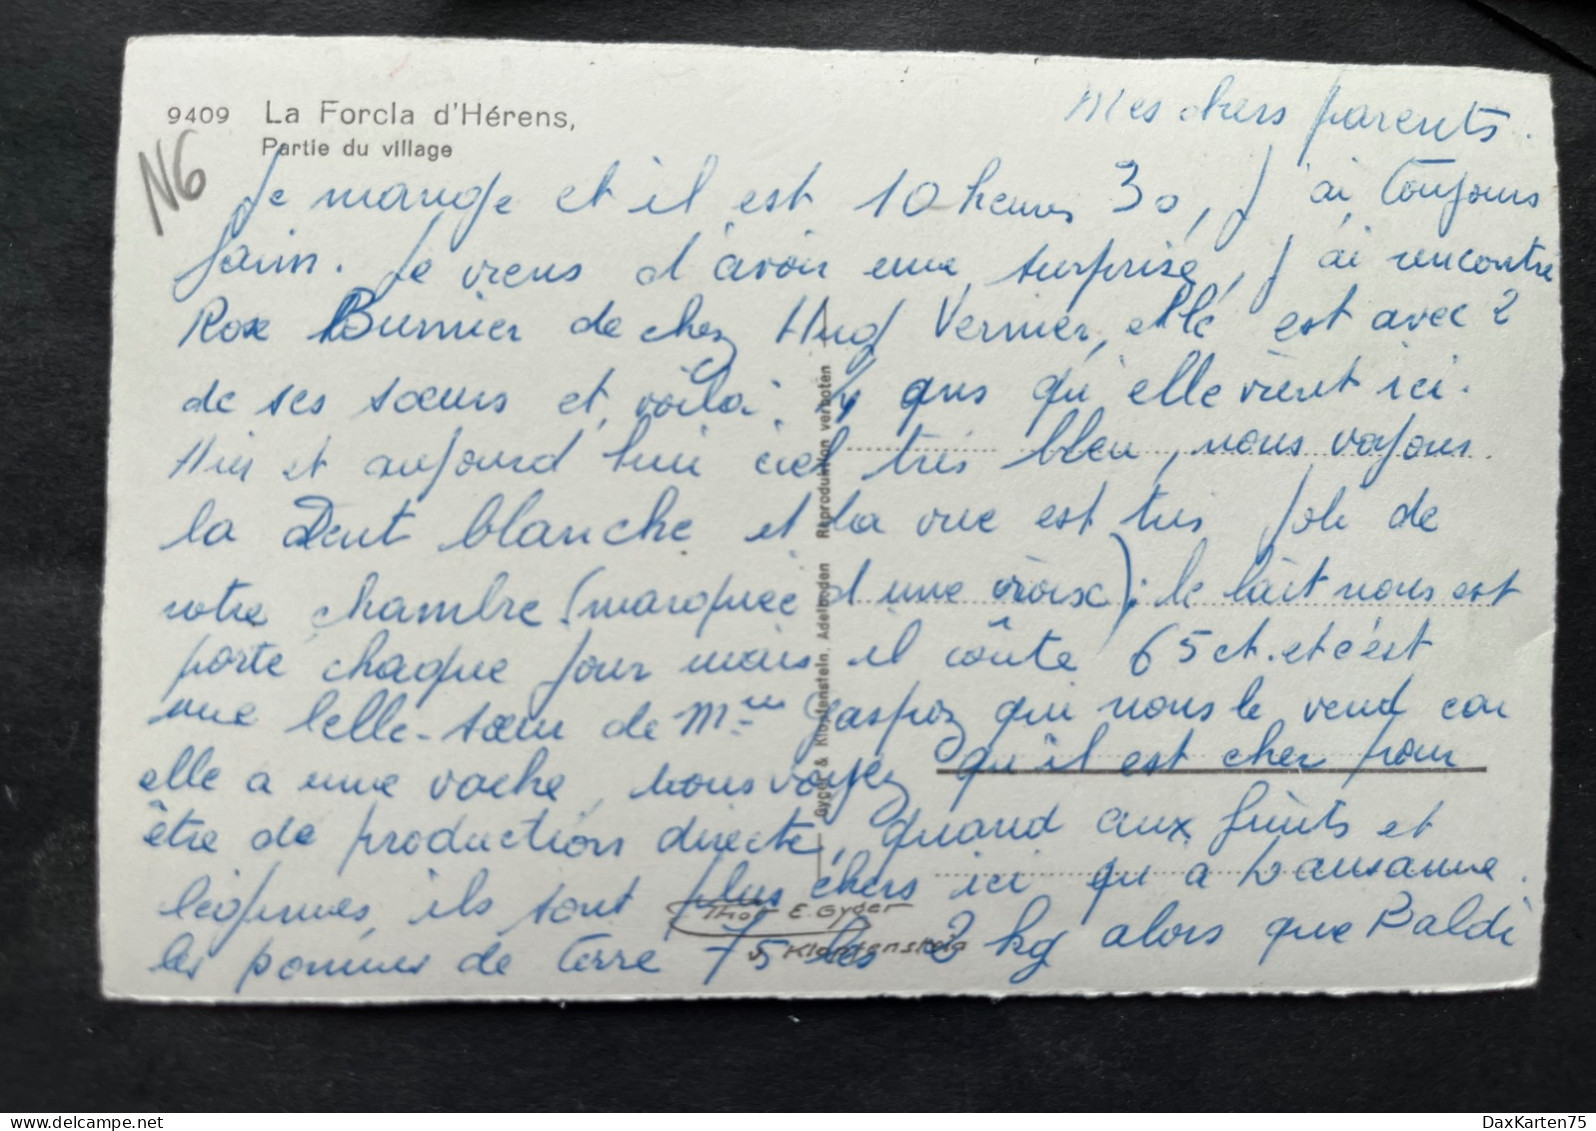 9409 La Forcla d'Hérens,
Partie du village
N6
Mes chers parents.
Je mange et il est 10 heures 30, j'ai toujours
faim. Je viens d'avoir une surprise, j'ai rencontré
Rose Burnier de chez Hug Vernier, elle est avec 2
de ses sœurs et voilà 4 ans qu'elle vient ici.
Hier et aujourd'hui ciel très bleu, nous voyons
la Dent blanche et la vue est très joli de
notre chambre (marquée d'une croix); le lait nous est
porté chaque jour mais il coûte 65 ct. et c'est
une belle-sœur de Mme Gaspoz qui nous le vend car
elle a une vache, vous voyez qu'il est cher pour
être de production directe, quand aux fruits et
légumes, ils sont plus chers ici qu'à Lausanne.
les pommes de terre 75 les 2 kg alors que Baldi
Gyger & Klopfenstein, Adelboden Reproduktion verboten
Thor E. Gyger
Klopfenstein
DaxKarten75